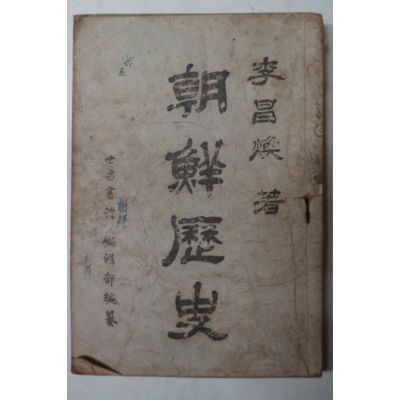 李昌煥 著
朝鮮歷史
世昌書舘 編輯部編纂